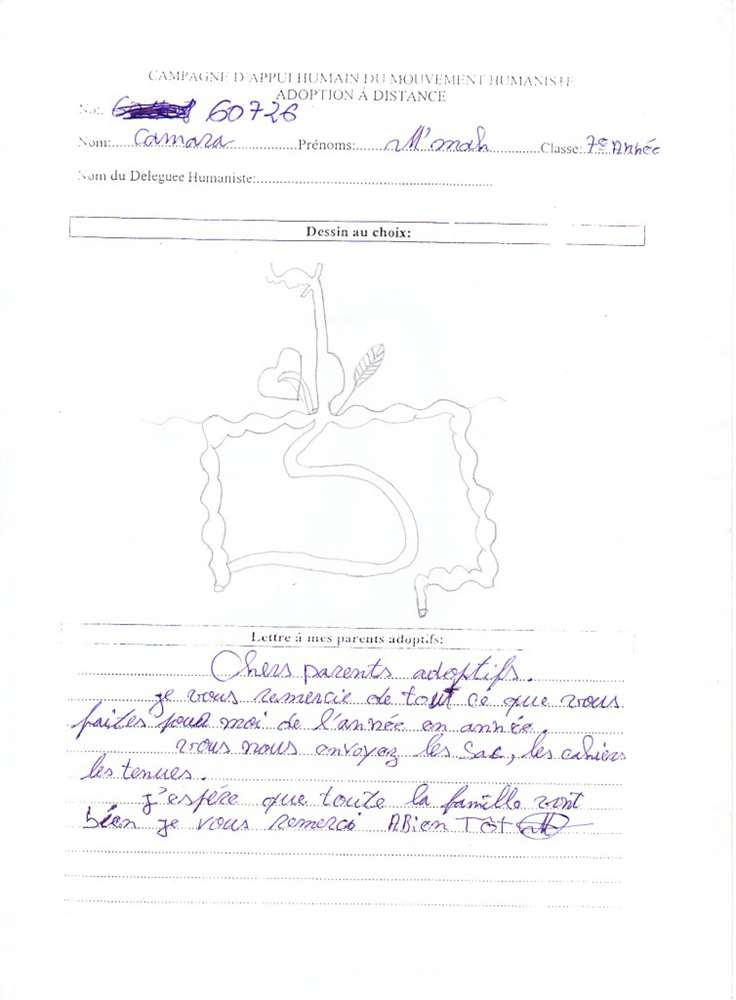 CAMPAGNE D'APPUI HUMAIN DU MOUVEMENT HUMANISTE
ADOPTION Á DISTANCE
No: 60726
Nom: Camara Prénoms: M'mah Classe: 7e Année
Nom du Deleguee Humaniste:
Dessin au choix:
Lettre á mes parents adoptifs:
Chers parents adoptifs.
je vous remercie de tout ce que vous
faites pour moi de l'année en année.
vous nous envoyez les Sac, les cahiers
les tenues.
j'espére que toute la famille vont
bien je vous remerci ABien Tôt